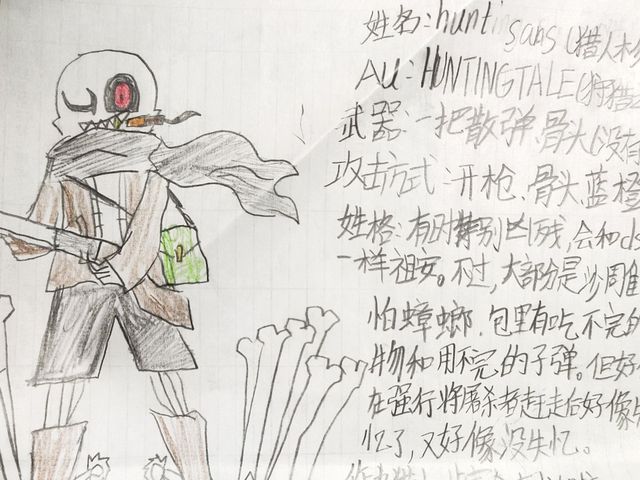 姓名:hunt sans(猎人
AU:HUNTINGTALE(狩猎
武器:一把散弹.骨头(没有
攻击方式:开枪.骨头,蓝橙
姓格:有时特别凶残,会和
一样祖安。不过,大部分是沙雕
怕蟑螂.包里有吃不完的
物和用不完的子弹。但好像
在强行将屠杀者赶走后好像失
忆了,又好像没失忆。